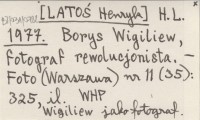 [LATOŚ Henryk] H.L.
1977. Borys Wigiliew,
fotograf rewolucjonista. –
Foto (Warszawa) nr 11 (35):
325, il. WHP
Wigiliew jako fotograf.